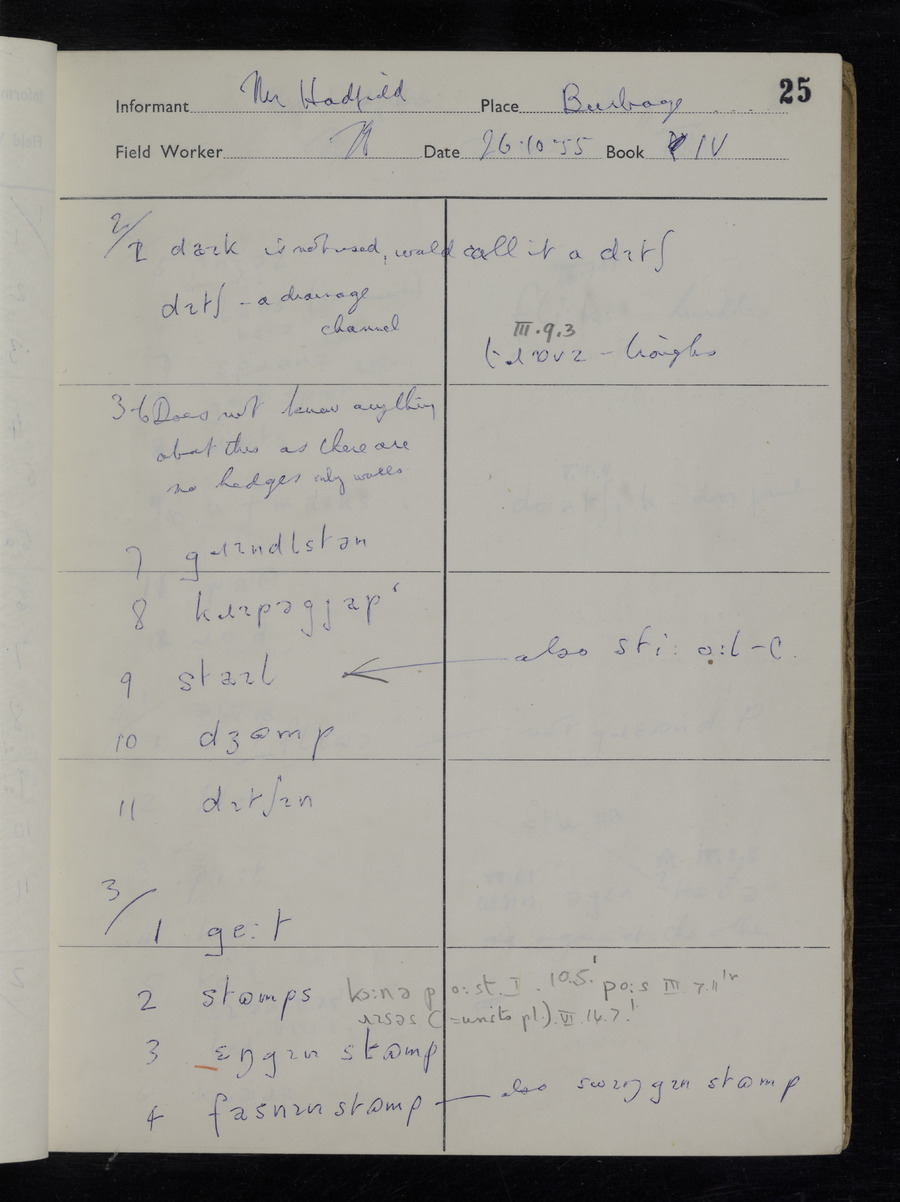 25
Informant Mr Hadfield Place Burbage
Field Worker Date 26·10·55 Book IV
2/
1 is not used, would call it a dɪtʃ
dɪtʃ - a drainage
channel
III.9.3
tɹɒvz - troughs
3-6 Does not know anything
about this as there are
no hedges only walls
7 gɹɪndlstən
8
9 staɪl
also sti: -C.
10 dʒɷmp
11 dɪtʃɪn
3/
1 ge:t
2 stɷmps kɔ:nə po:st. I. 10.5. po:s III 7.11
(=units pl.). VI. 14.7.
3 ɛŋgɪn stɷmp
4 fasnɪn stɷmp also swɪŋgɪn stɷmp